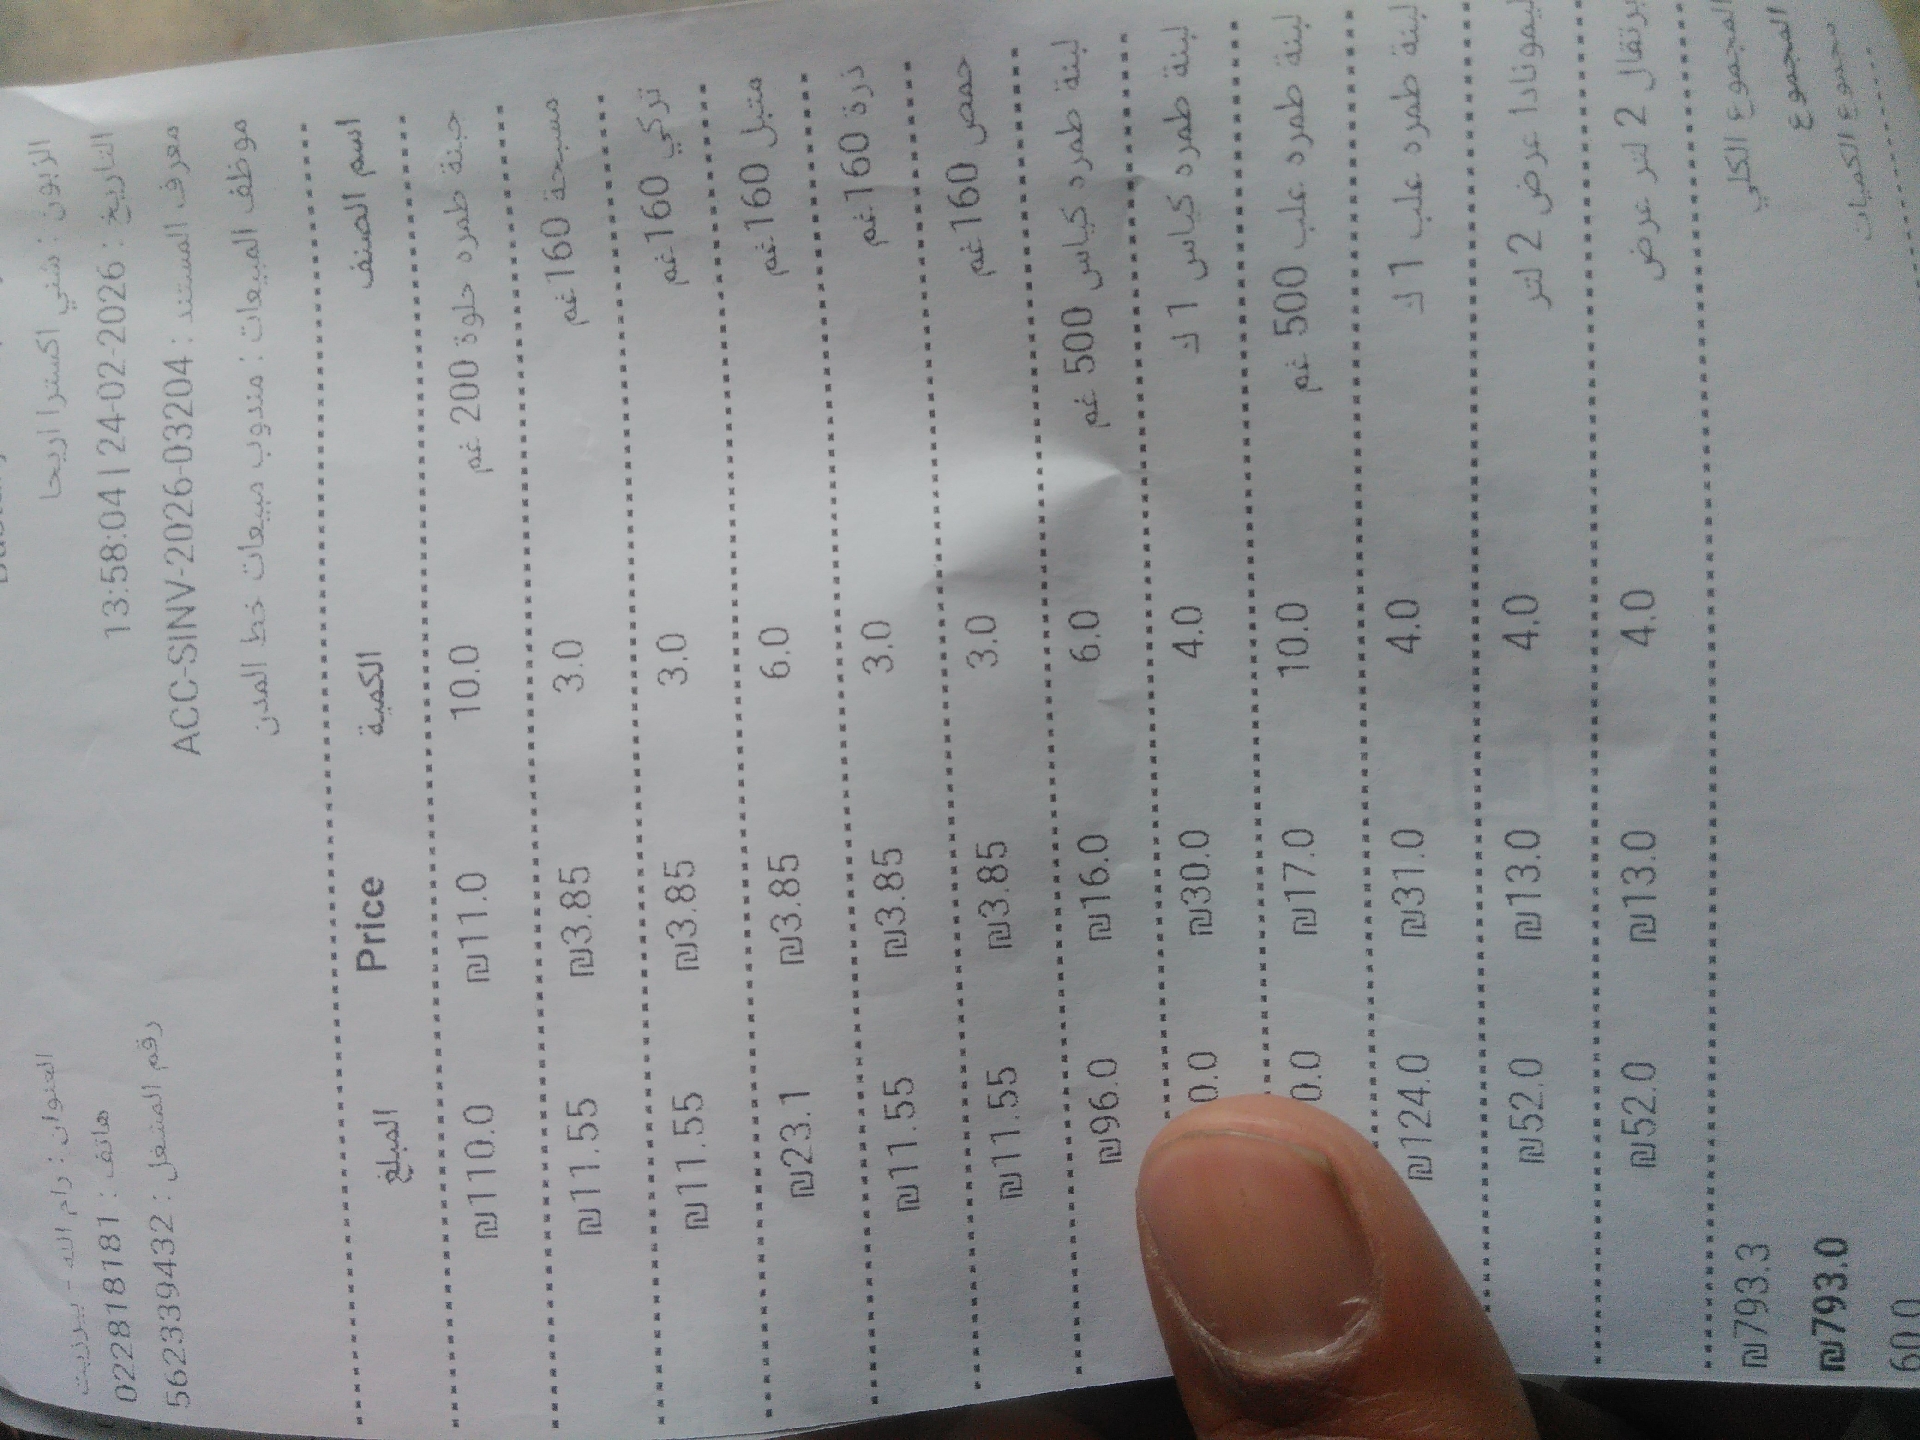 الزبون : شني اكسترا اريحا
العنوان : رام الله - بيرزيت
التاريخ : 24-02-2026 | 13:58:04
هاتف : 022818181
معرف المستند : ACC-SINV-2026-03204
رقم المشغل : 562339432
موظف المبيعات : مندوب مبيعات خط المدن
اسم الصنف الكمية Price المبلغ
جبنة طمره حلوة 200 غم 10.0 ₪11.0 ₪110.0
مسبحة 160غم 3.0 ₪3.85 ₪11.55
تركي 160غم 3.0 ₪3.85 ₪11.55
متبل 160غم 6.0 ₪3.85 ₪23.1
ذرة 160غم 3.0 ₪3.85 ₪11.55
حمص 160غم 3.0 ₪3.85 ₪11.55
لبنة طمره كياس 500 غم 6.0 ₪16.0 ₪96.0
لبنة طمره كياس 1 ك 4.0 ₪30.0 0.0
لبنة طمره علب 500 غم 10.0 ₪17.0 0.0
لبنة طمره علب 1 ك 4.0 ₪31.0 ₪124.0
ليمونادا عرض 2 لتر 4.0 ₪13.0 ₪52.0
برتقال 2 لتر عرض 4.0 ₪13.0 ₪52.0
المجموع الكلي ₪793.3
المجموع ₪793.0
مجموع الكميات 60.0